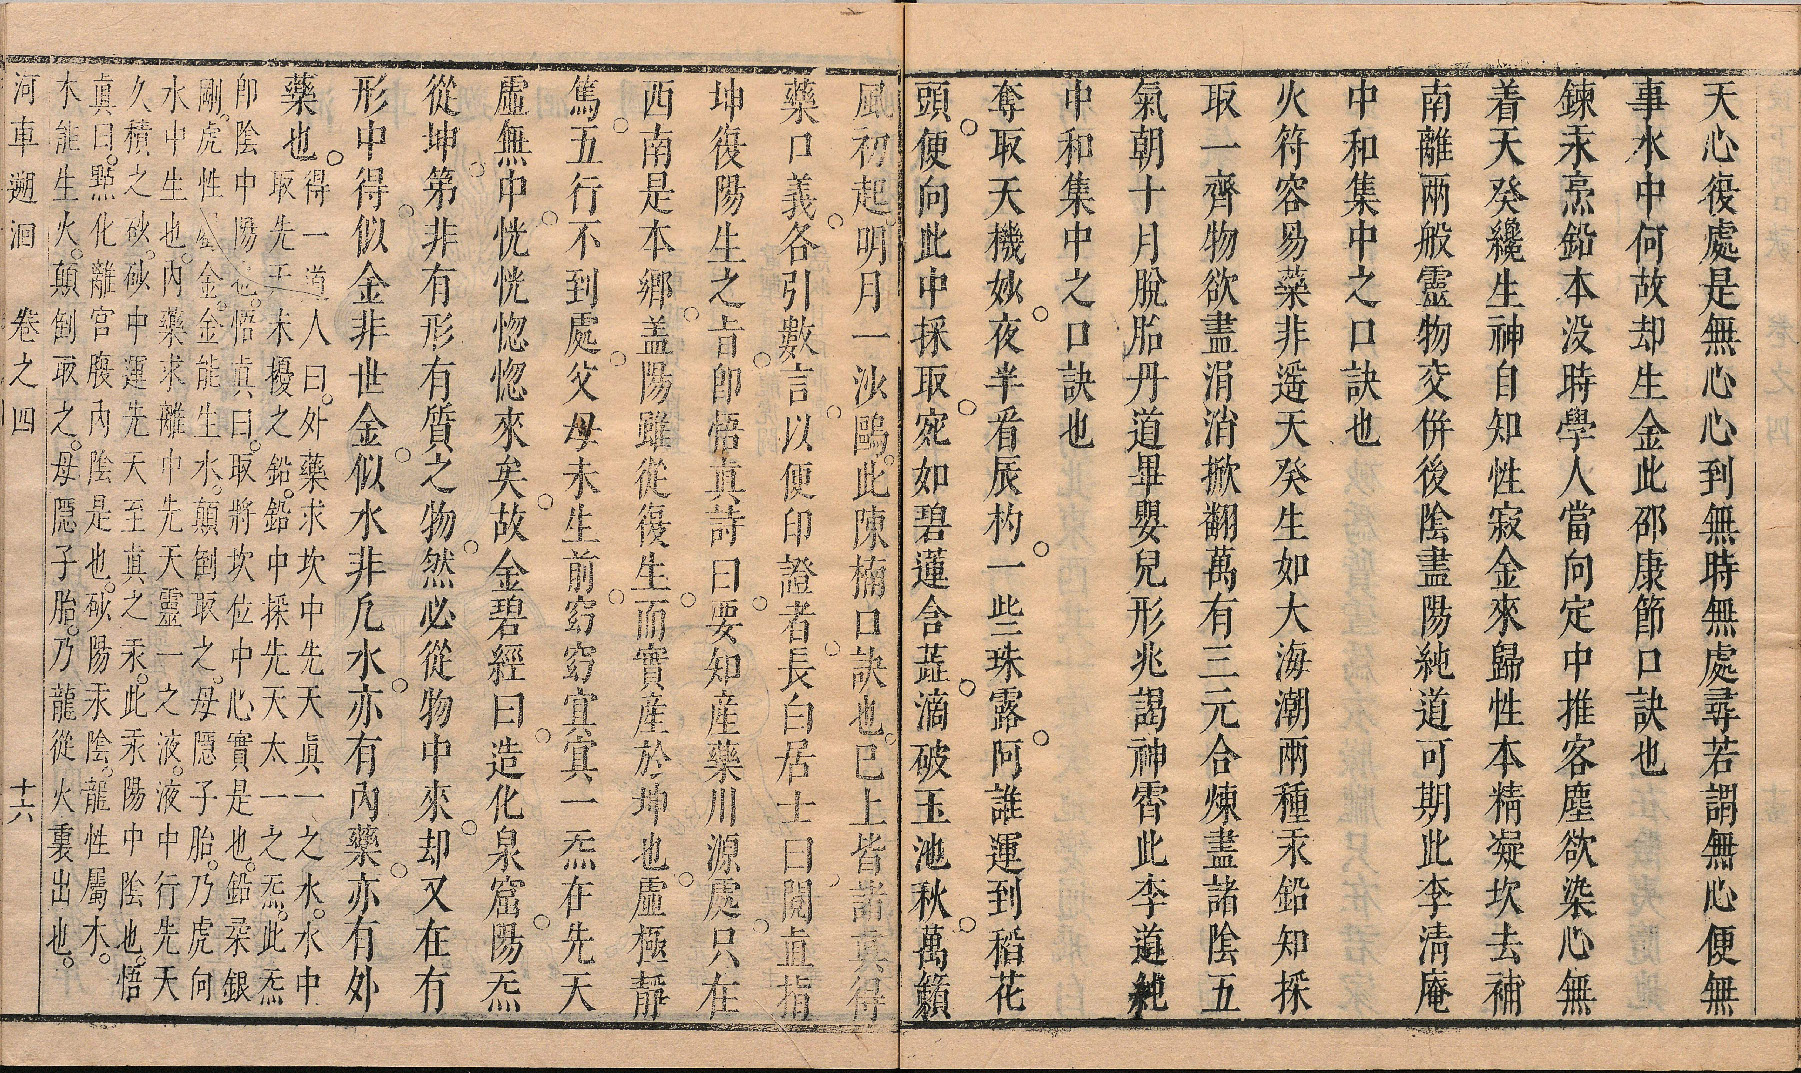 天心復處是無心心到無時無處尋若謂無心便無
事水中何故却生金此邵康節口訣也
鍊汞烹鉛本没時學人當向定中推客塵欲染心無
着天癸纔生神自知性寂金來歸性本精凝坎去補
南離兩般靈物交併後陰盡陽純道可期此李清庵
中和集中之口訣也
火符容易藥非遥天癸生如大海潮兩種汞鉛知採
取一齊物欲盡涓消掀翻萬有三元合煉盡諸陰五
氣朝十月脫胎丹道畢嬰兒形兆謁神霄此李道純
中和集中之口訣也
奪取天機妙夜半看辰杓一些珠露阿誰運到稻花
頭便向此中採取宛如碧蓮含蕋滴破玉池秋萬籟
風初起明月一沙鷗此陳楠口訣也已上皆諸真得
藥口義各引數言以便印證者長白居士曰閱直指
坤復陽生之旨卽悟真詩曰要知産藥川源處只在
西南是本鄉盖陽雖從復生而實産於坤也虛極靜
篤五行不到處父母未生前窈窈㝠㝠一炁在先天
虛無中恍恍惚惚來矣故金碧經曰造化泉窟陽炁
從坤第非有形有質之物然必從物中來却又在有
形中得似金非世金似水非凡水亦有內藥亦有外
藥也得一道人曰外藥求坎中先天眞一之水水中
取先天未擾之鉛鉛中採先天太一之炁此炁
卽陰中陽也悟真曰取將坎位中心實是也鉛柔銀
剛虎性屬金金能生水顛倒取之母隱子胎乃虎向
水中生也內藥求離中先天靈一之液液中行先天
久積之砂砂中運先天至真之汞此汞陽中陰也悟
真曰點化離宮腹內陰是也砂陽汞陰龍性屬木
木能生火顛倒取之母隱子胎乃龍從火裏出也
河車遡洄　卷之四　十六